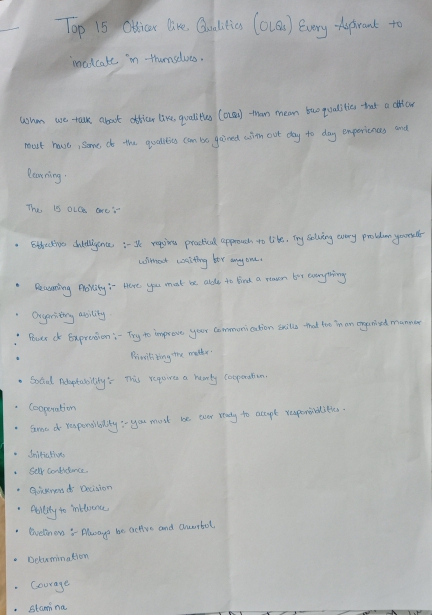 Top 15 Officer like Qualities (OLQs) Every Aspirant to
inculcate in themselves.
When we talk about officer like qualities (OLQs) than mean few qualities that a officer
must have. Some of the qualities can be gained with out day to day experiences and
learning.
The 15 OLQs are :-
• Effective Intelligence :- It requires practical approach to life. Try solving every problem yourself
without waiting for any one.
• Reasoning Ability :- Here you must be able to find a reason for everything
• Organising ability
• Power of Expression :- Try to improve your communication skills that too in an organised manner
Prioritizing the matter.
• Social Adaptability :- This requires a hearty cooperation.
• Cooperation
• Sense of responsibility :- you must be ever ready to accept responsibilities.
• Initiative
• Self Confidence
• Quickness of Decision
• Ability to influence
• Liveliness :- Always be active and cheerful
• Determination
• Courage
• Stamina